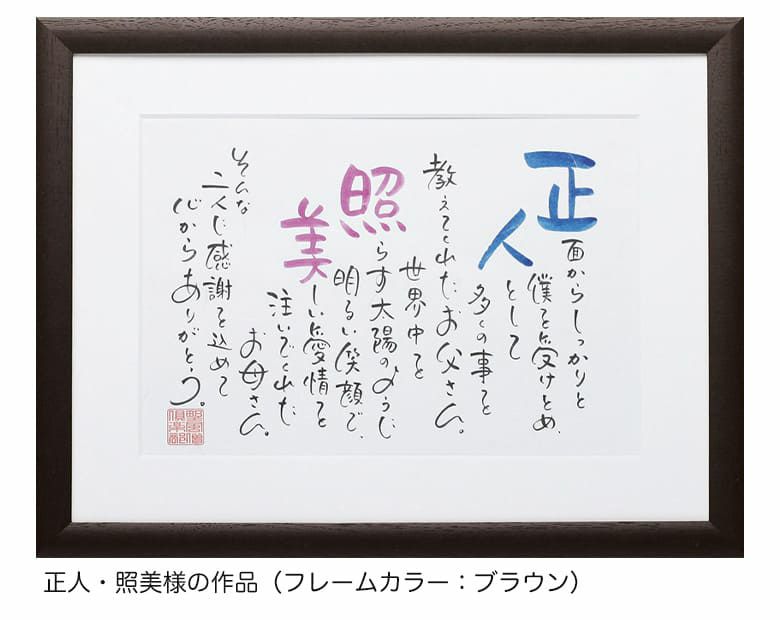 正面からしっかりと
僕を受けとめ、
人として
多くの事を
教えてくれたお父さん。
世界中を
照らす太陽のように
明るい笑顔で、
美しい愛情を
注いでくれた
お母さん。
そんな
二人に感謝を込めて
心からありがとう。
正人・照美様の作品（フレームカラー：ブラウン）